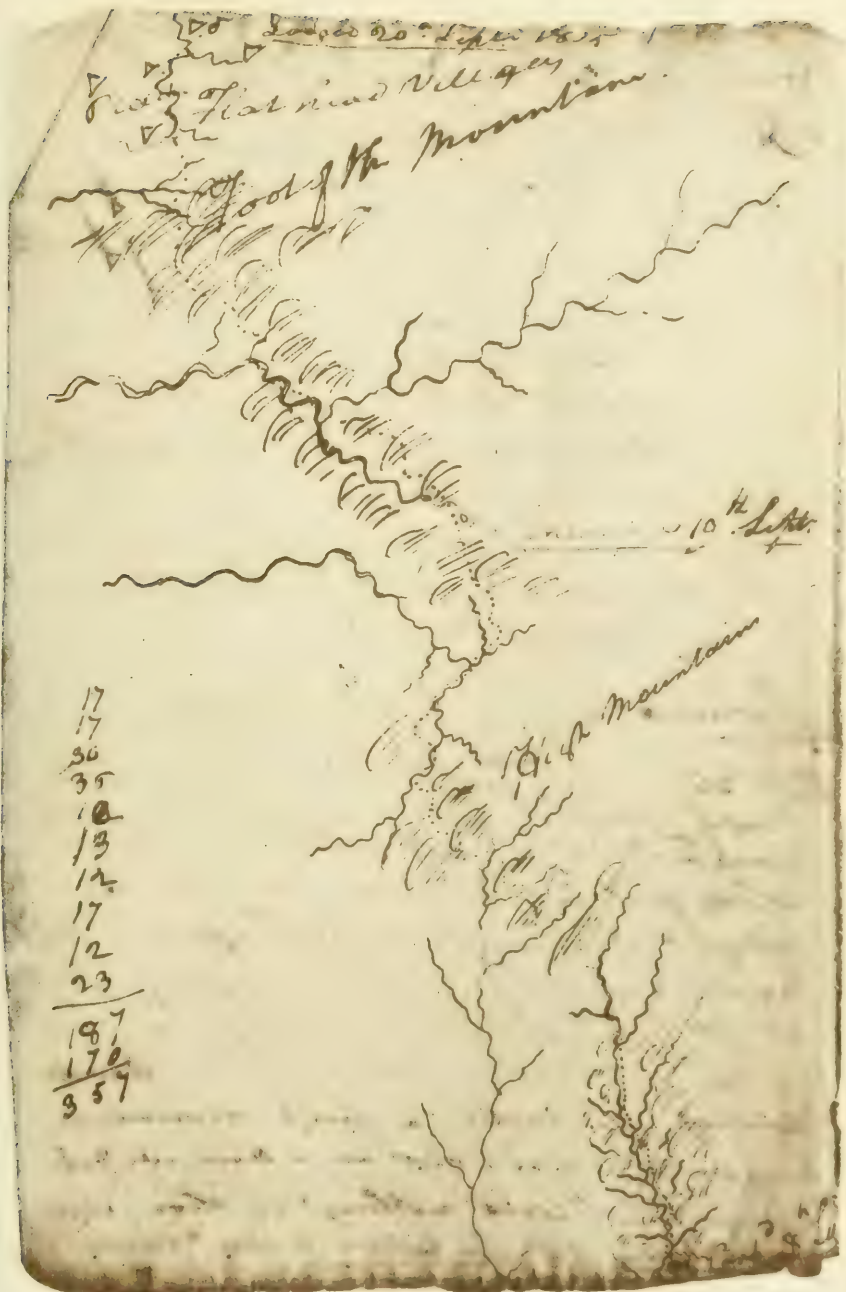 20th Septr 1805
Flat head Villages
Foot of the Mountain
10th Septr.
High Mountains
17
17
30
35
12
13
12
17
12
23
187
170
357